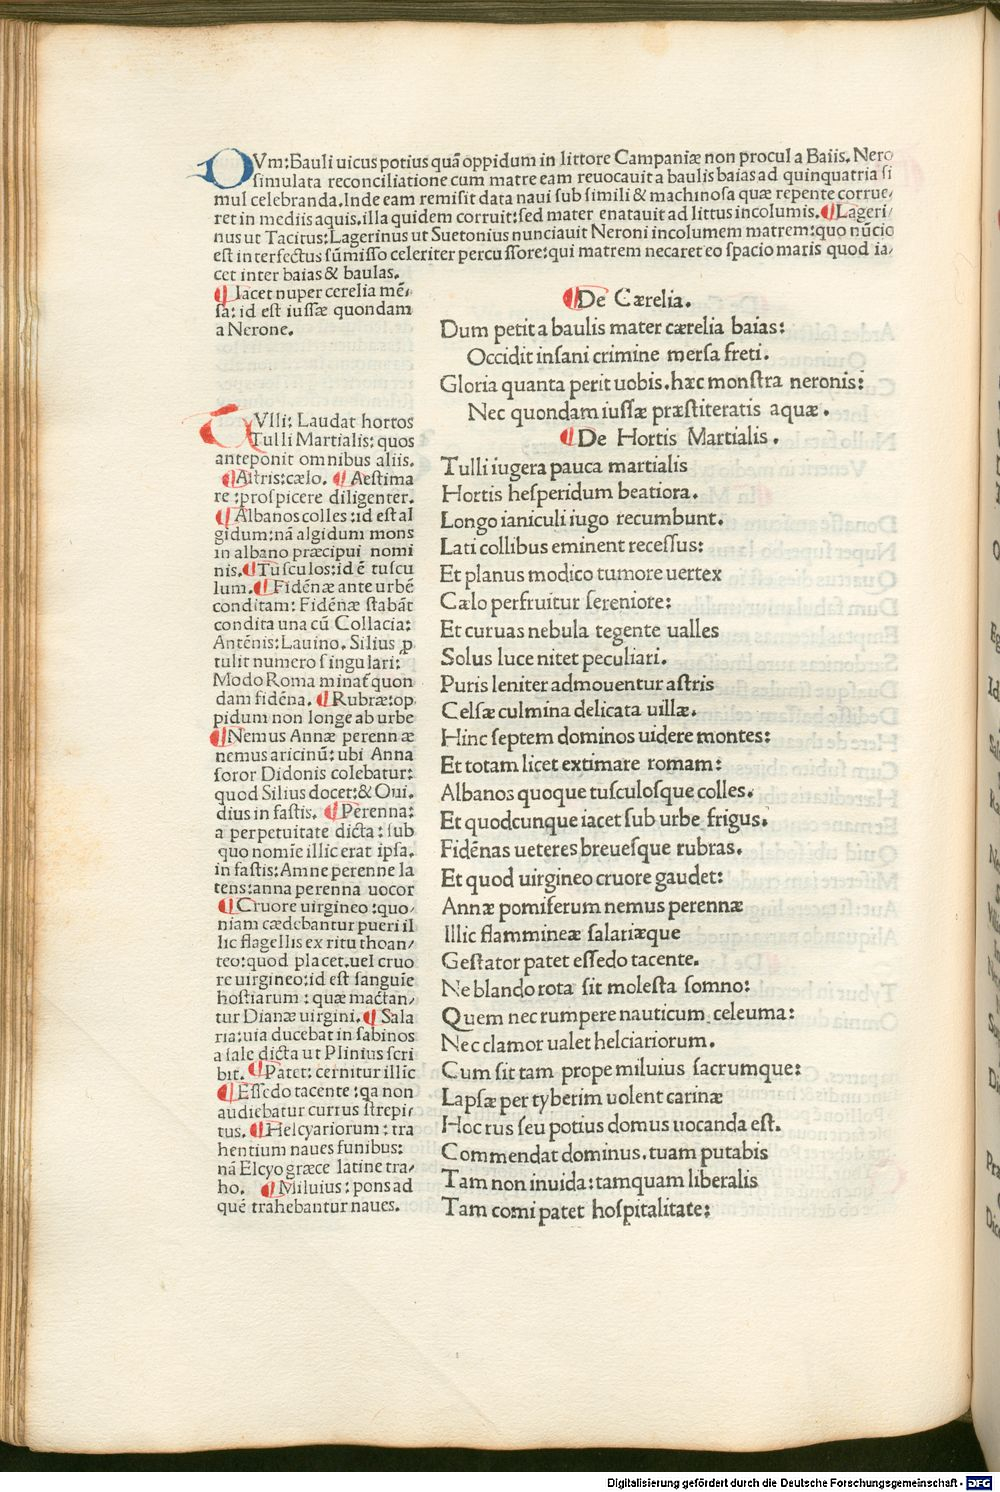 DVm: Bauli uicus potius quã oppidum in littore Campaniæ non procul a Baiis. Nero
ſimulata reconciliatione cum matre eam reuocauit a baulis baias ad quinquatria ſi
mul celebranda. Inde eam remiſit data naui ſub ſimili & machinoſa quæ repente corrue/
ret in mediis aquis. illa quidem corruit: ſed mater enatauit ad littus incolumis. ¶ Lageri/
nus ut Tacitus: Lagerinus ut Suetonius nunciauit Neroni incolumem matrem: quo nũcio
eſt interfectus ſũmiſſo celeriter percuſſore: qui matrem necaret eo ſpacio maris quod ia/
cet inter baias & baulas.
¶ Iacet nuper cerelia mẽr/
ſa: id eſt iuſſæ quondam
a Nerone.
TVlli: Laudat hortos
Tulli Martialis: quos
anteponit omnibus aliis.
¶ Aſtris: cælo. ¶ Aeſtima
re: proſpicere diligenter.
¶ Albanos colles: id eſt al
gidum: nã algidum mons
in albano præcipui nomi
nis. ¶ Tuſculos: id ẽ tuſcu
lum. ¶ Fidẽnæ ante urbẽ
conditam: Fidẽnæ ſtabãt
condita una cũ Collacia:
Antẽnis: Lauino. Silius ꝓ
tulit numero ſingulari:
Modo Roma minat᷑ quon
dam fidẽna. ¶ Rubræ: op
pidum non longe ab urbe
¶ Nemus Annæ perennæ
nemus aricinũ: ubi Anna
ſoror Didonis colebatur:
quod Silius docet: & Oui.
dius in faſtis. ¶ Perenna:
a perpetuitate dicta: ſub
quo nomĩe illic erat ipſa.
in faſtis: Amne perenne la
tens: anna perenna uocor
¶ Cruore uirgineo: quo/
niam cædebantur pueri il
lic flagellis ex ritu thoan/
teo: quod placet. uel cruo
re uirgineo: id eſt ſanguĩe
hoſtiarum: quæ mactan/
tur Dianæ uirgini. ¶ Sala
ria: uia ducebat in ſabinos
a ſale dicta ut Plinius ſcri
bit. ¶ Patet: cernitur illic
¶ Eſſedo tacente: qa non
audiebatur currus ſtrepi/
tus. ¶ Helcyariorum: tra
hentium naues funibus:
nã Elcyo græce latine tra/
ho. ¶ Miluius: pons ad
quẽ trahebantur naues.
¶ De Cærelia.
Dum petit a baulis mater cærelia baias:
Occidit inſani crimine merſa freti.
Gloria quanta perit uobis. hæc monſtra neronis:
Nec quondam iuſſæ præſtiteratis aquæ.
¶ De Hortis Martialis.
Tulli iugera pauca martialis
Hortis heſperidum beatiora.
Longo ianiculi iugo recumbunt.
Lati collibus eminent receſſus:
Et planus modico tumore uertex
Cælo perfruitur ſereniore:
Et curuas nebula tegente ualles
Solus luce nitet peculiari.
Puris leniter admouentur aſtris
Celſæ culmina delicata uillæ.
Hinc ſeptem dominos uidere montes:
Et totam licet extimare romam:
Albanos quoque tuſculoſque colles.
Et quodcunque iacet ſub urbe frigus.
Fidẽnas ueteres breueſque rubras.
Et quod uirgineo cruore gaudet:
Annæ pomiferum nemus perennæ
Illic flammineæ ſalariæque
Geſtator patet eſſedo tacente.
Ne blando rota ſit moleſta ſomno:
Quem nec rumpere nauticum celeuma:
Nec clamor ualet helciariorum.
Cum ſit tam prope miluius ſacrumque:
Lapſæ per tyberim uolent carinæ
Hoc rus ſeu potius domus uocanda eſt.
Commendat dominus. tuam putabis
Tam non inuida: tamquam liberalis
Tam comi patet hoſpitalitate:
Digitalisierung gefördert durch die Deutsche Forschungsgemeinschaft - DFG